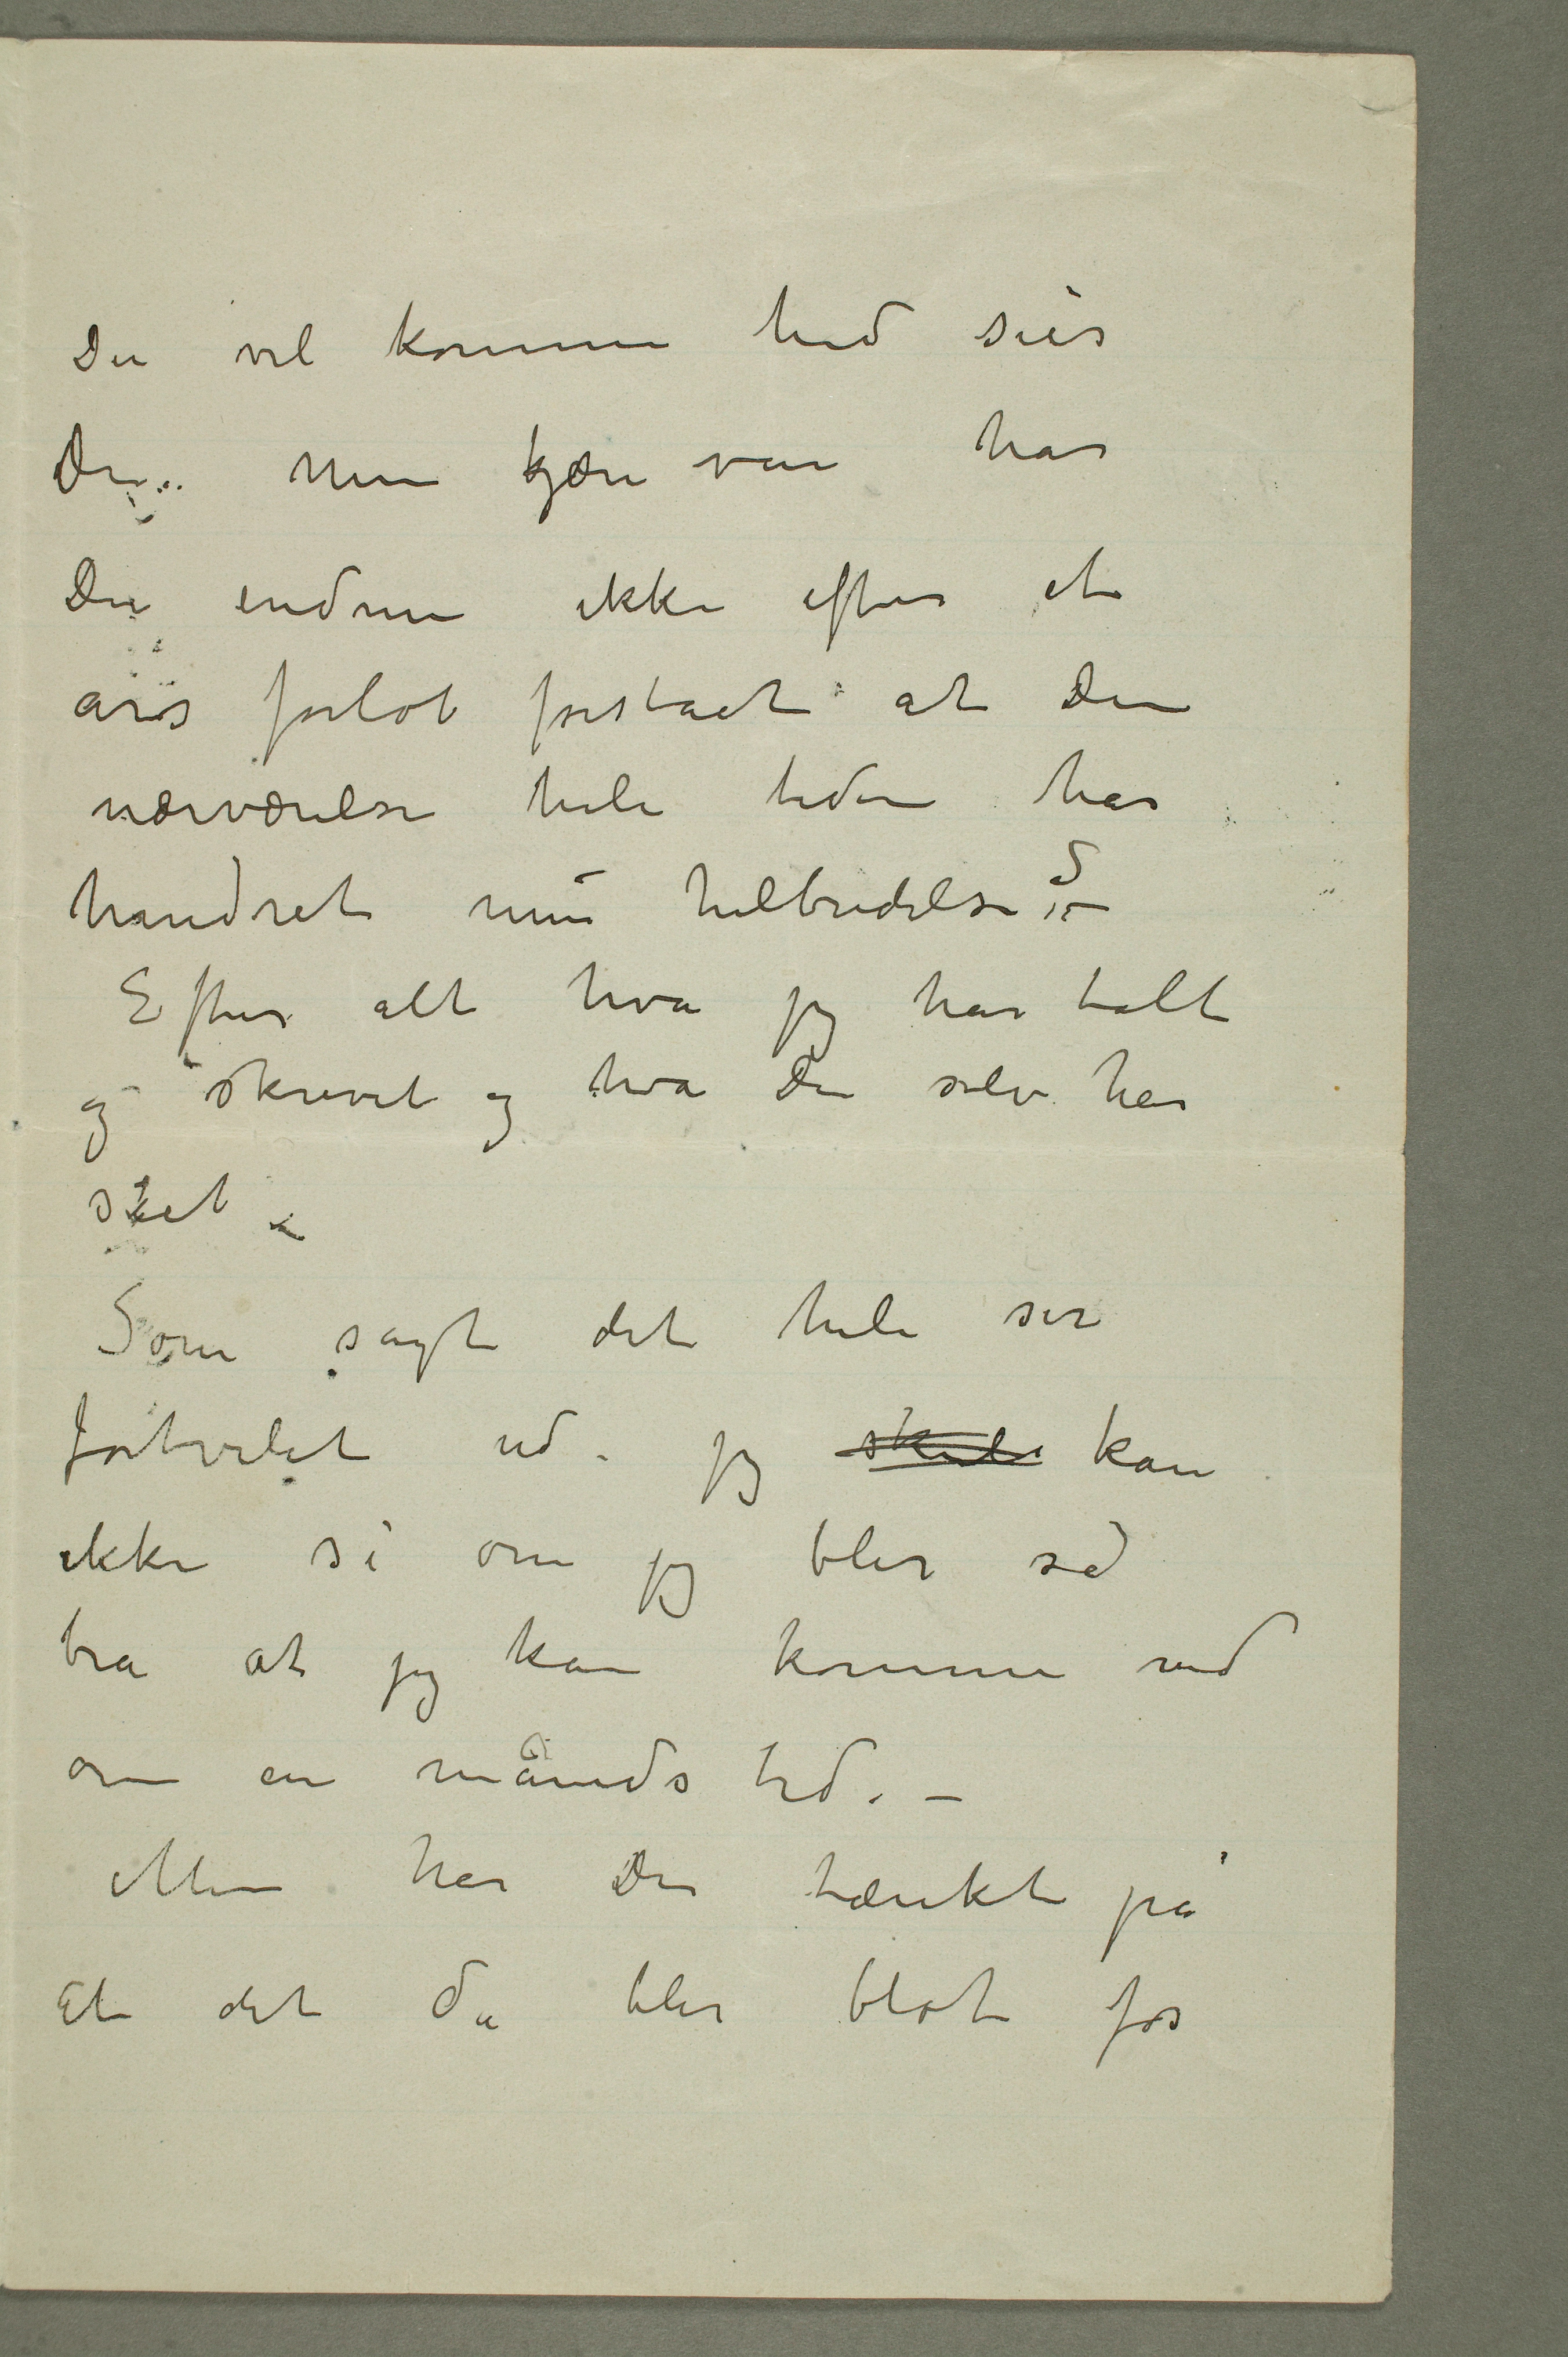 Du vil komme hid siér
Du. Min kjære ven har
Du endnu ikke efter et
års forløb forståt at Din
nærværelse hele tiden har
hindret min helbredelse? –
Efter alt hva jeg har talt
og skrevet og hva Du selv har
sèet –
Som sagt det hele ser
fortvilet ud. jeg skulde kan
ikke si om jeg blir så
bra at jeg kan komme ned
om en måneds tid. –
Men har Du tænkt på
at det da blir blot for